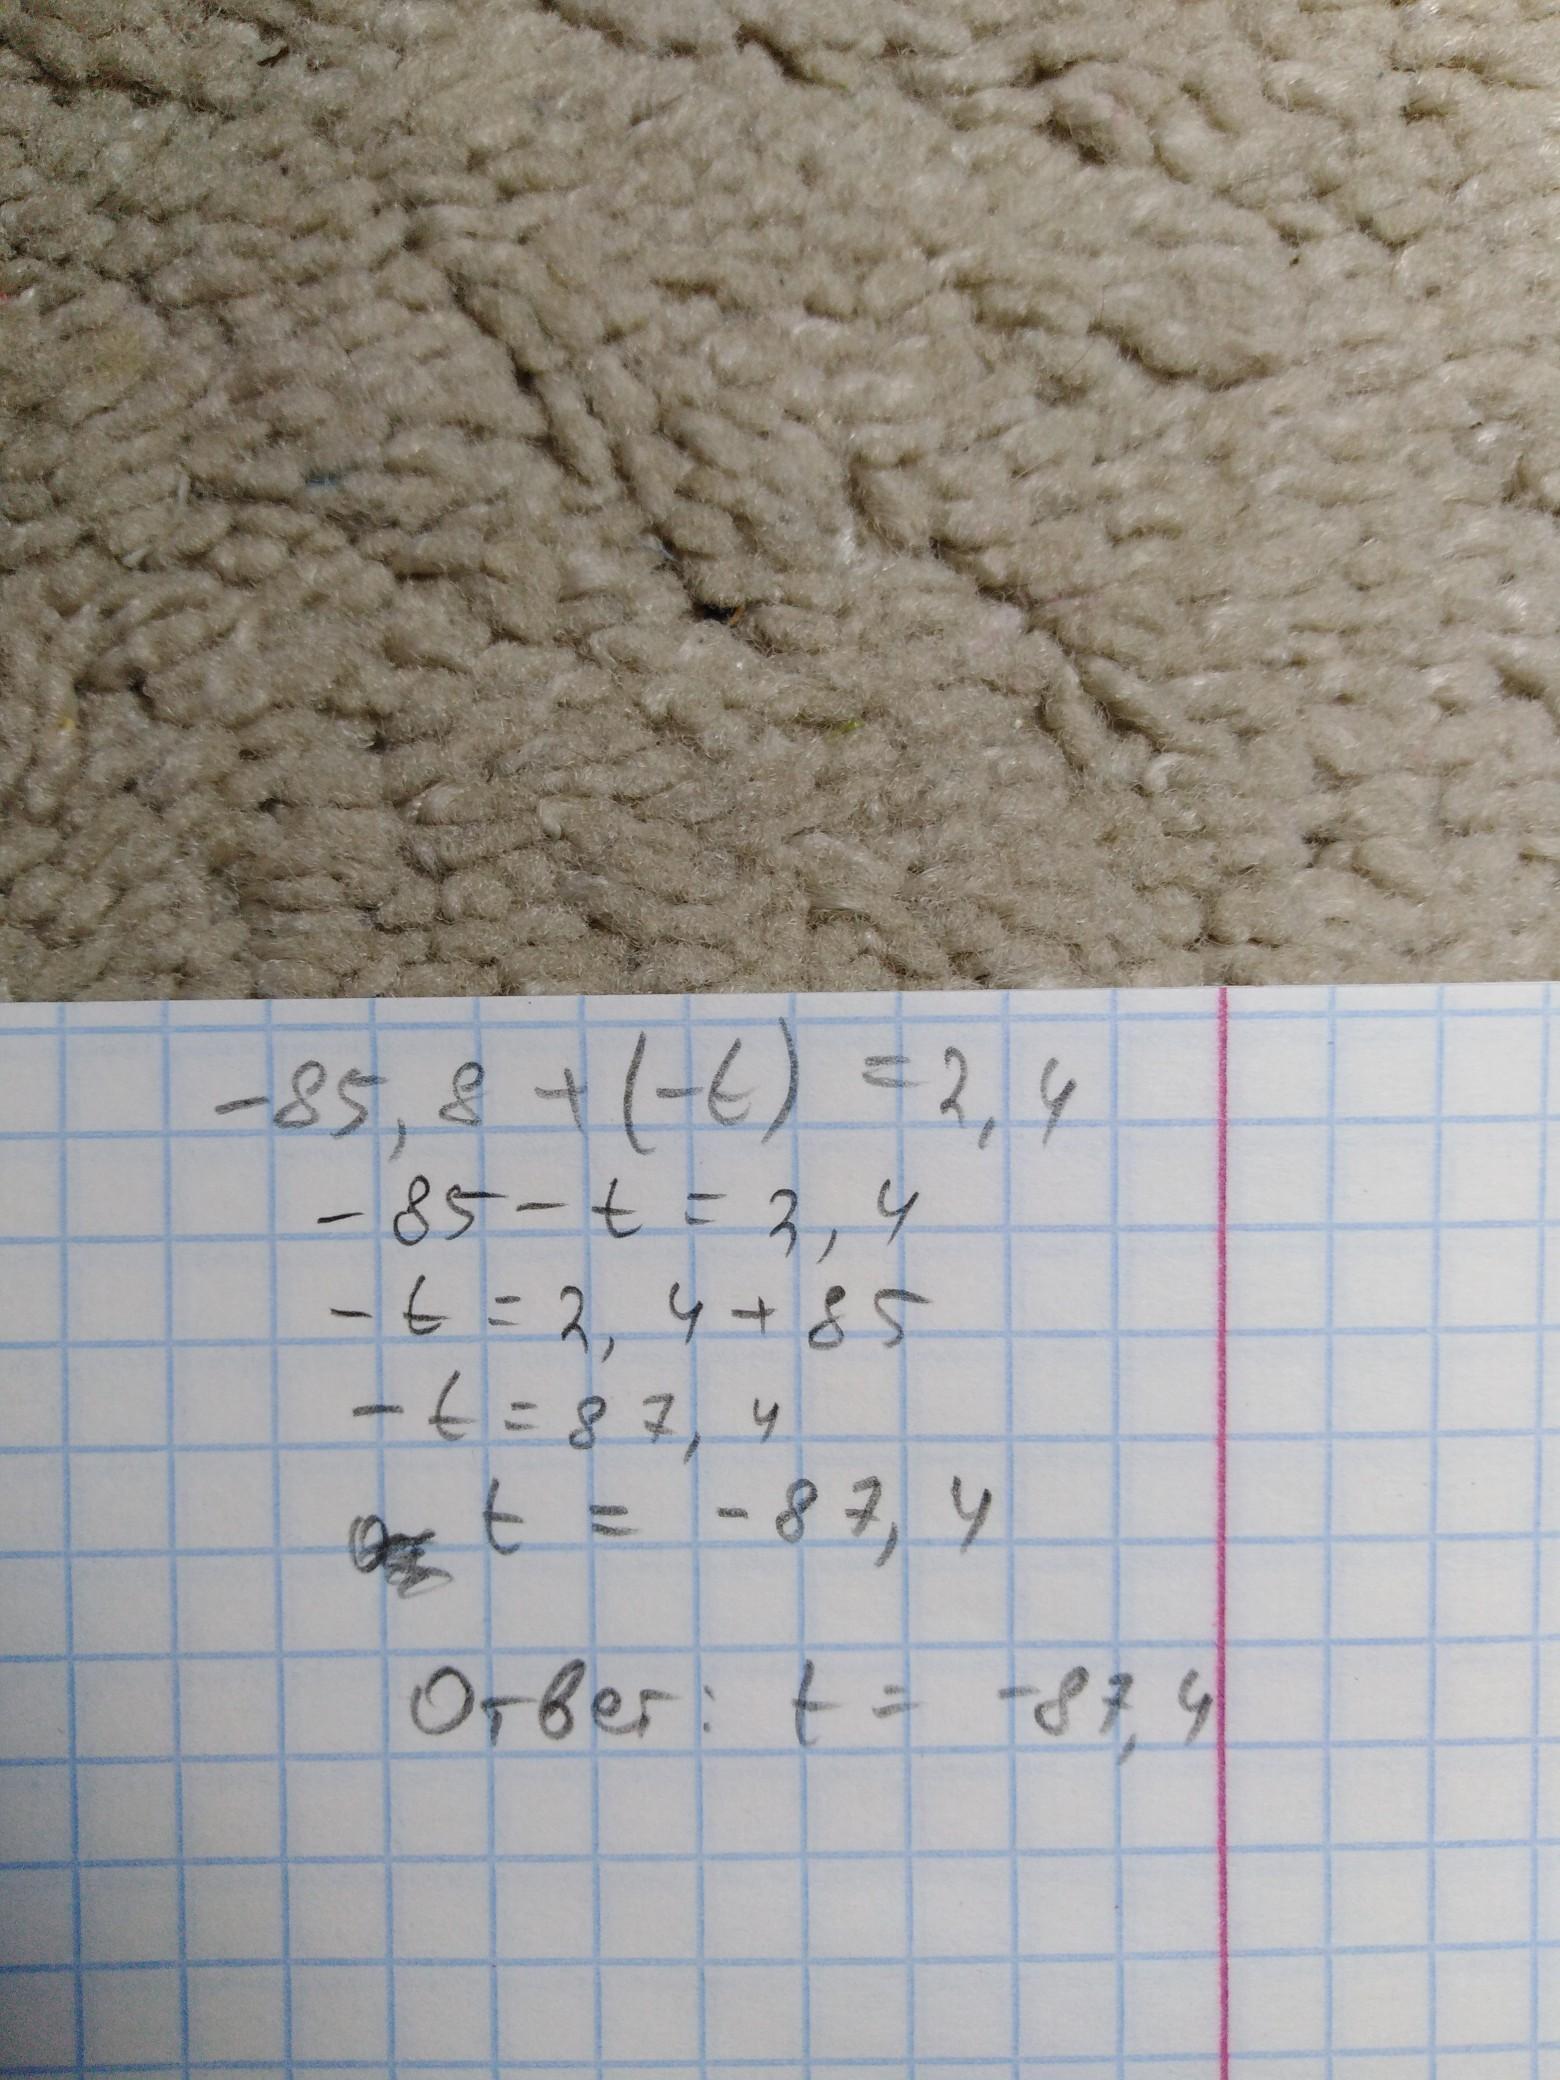 -85,8 + (-t) = 2,4
-85 - t = 2,4
-t = 2,4 + 85
-t = 87,4
t = -87,4
Ответ: t = -87,4